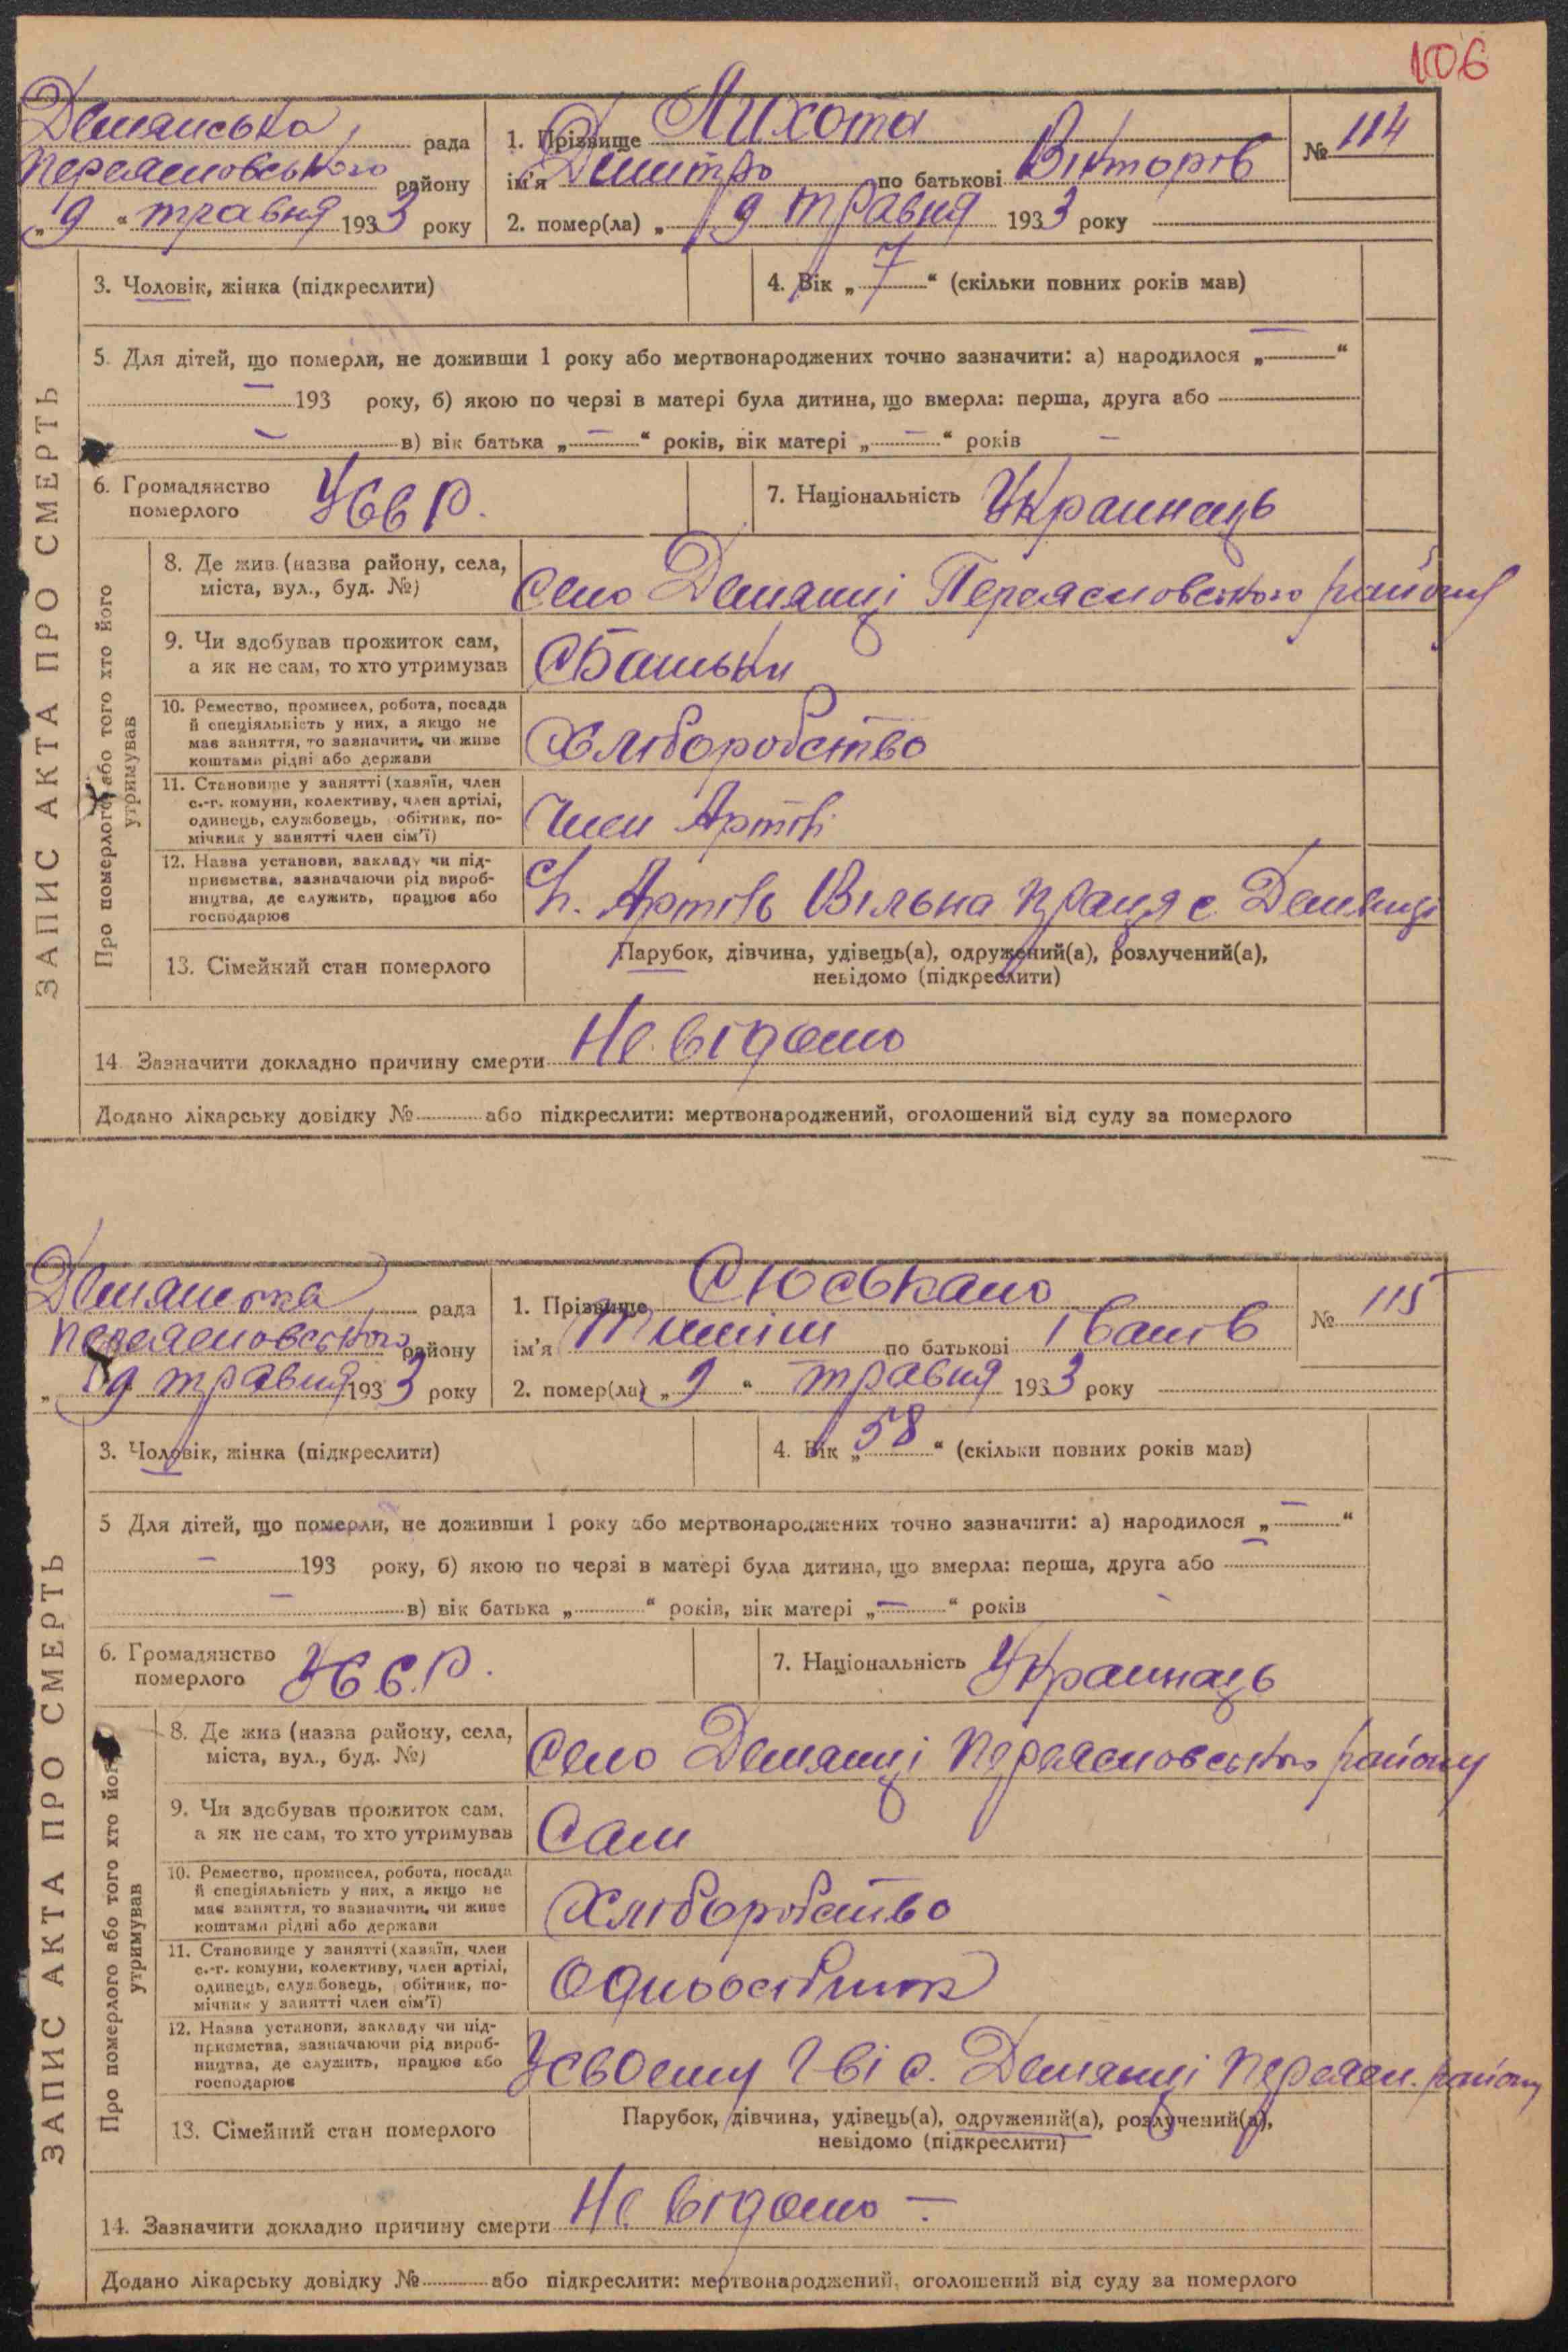 106
Демянська рада
Переясловського району
„9“ травня 1933 року
1. Прізвище Лихота
ім'я Дмитро по батькові Вікторів
№ 114
2. помер(ла) „9 травня 1933 року
3. Чоловік, жінка (підкреслити)
4. Вік „7“ (скільки повних років мав)
5. Для дітей, що померли, не доживши 1 року або мертвонароджених точно зазначити: а) народилося „—“
— 193 року, б) якою по черзі в матері була дитина, що вмерла: перша, друга або
— в) вік батька „—“ років, вік матері „—“ років —
6. Громадянство померлого УССР.
7. Національність Украинець
ЗАПИС АКТА ПРО СМЕРТЬ
Про померлого або того хто його утримував
8. Де жив (назва району, села, міста, вул., буд. №) село Демянці Переясловського району
9. Чи здобував прожиток сам, а як не сам, то хто утримував Батьки
10. Ремество, промисел, робота, посада й спеціяльність у них, а якщо не має заняття, то зазначити, чи живе коштами рідні або держави Хліборобство
11. Становище у занятті (хазяїн, член с.-г. комуни, колективу, член артілі, одинець, службовець, обітник, помічник у занятті член сім'ї) Член Артілі
12. Назва установи, закладу чи підприємства, зазначаючи рід виробництва, де служить, працює або господарює Артіль Вільна праця с Демянці
13. Сімейний стан померлого
Парубок, дівчина, удівець(а), одружений(а), розлучений(а),
невідомо (підкреслити)
14. Зазначити докладно причину смерти Не відомо
Додано лікарську довідку № або підкреслити: мертвонароджений, оголошений від суду за померлого
Демянська рада
Переясловського району
„9 травня 1933 року
1. Прізвище Сюськало
ім'я Тиміш по батькові Іванів
№ 115
2. помер(ла) „9“ травня 1933 року
3. Чоловік, жінка (підкреслити)
4. Вік „58“ (скільки повних років мав)
5 Для дітей, що померли, не доживши 1 року або мертвонароджених точно зазначити: а) народилося „—“
— 193 року, б) якою по черзі в матері була дитина, що вмерла: перша, друга або —
— в) вік батька „“ років, вік матері „—“ років
6. Громадянство померлого УССР.
7. Національність Украинець
ЗАПИС АКТА ПРО СМЕРТЬ
Про померлого або того хто його утримував
8. Де жив (назва району, села, міста, вул., буд. №) село Демянці Переясловського району
9. Чи здобував прожиток сам, а як не сам, то хто утримував Сам
10. Ремество, промисел, робота, посада й спеціяльність у них, а якщо не має заняття, то зазначити, чи живе коштами рідні або держави Хліборобство
11. Становище у занятті (хазяїн, член с.-г. комуни, колективу, член артілі, одинець, службовець, обітник, помічник у занятті член сім'ї) Одноосібник
12. Назва установи, закладу чи підприємства, зазначаючи рід виробництва, де служить, працює або господарює У своему г-ві с. Демянці Переясл. району
13. Сімейний стан померлого
Парубок, дівчина, удівець(а), одружений(а), розлучений(а),
невідомо (підкреслити)
14. Зазначити докладно причину смерти Не відомо –
Додано лікарську довідку № або підкреслити: мертвонароджений, оголошений від суду за померлого